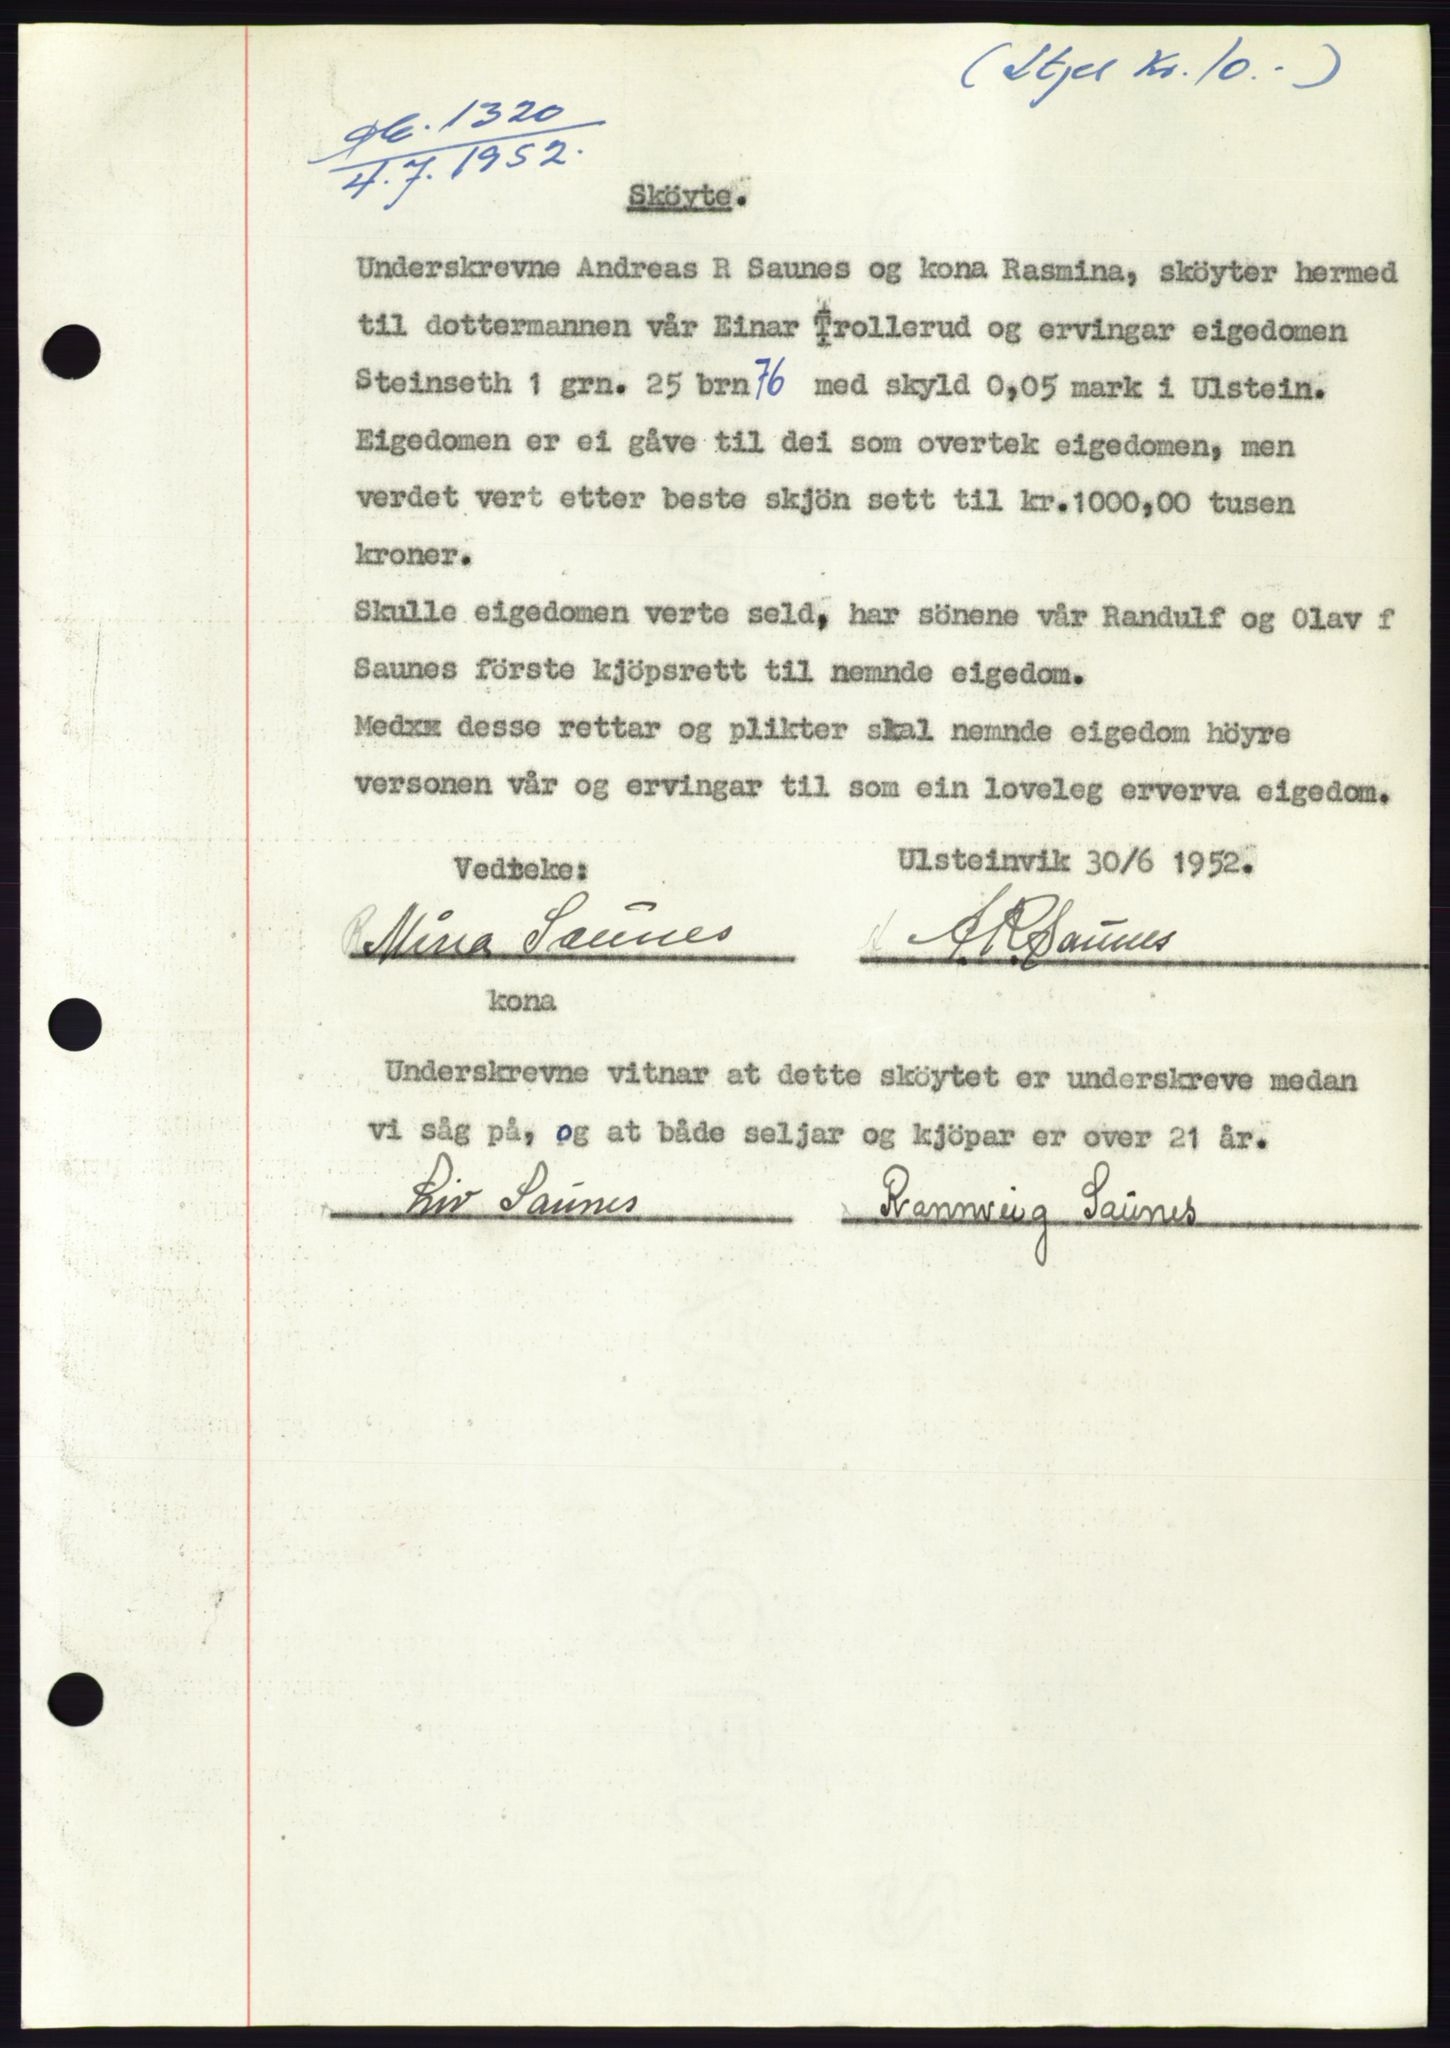 (Stpl Kr. 10.-)
Db. 1320
4.7.1952.
Sköyte.
Underskrevne Andreas R Saunes og kona Rasmina, sköyter hermed
til dottermannen vår Einar Trollerud og ervingar eigedomen
Steinseth 1 grn. 25 brn 76 med skyld 0,05 mark i Ulstein.
Eigedomen er ei gåve til dei som overtek eigedomen, men
verdet vert etter beste skjön sett til kr.1000,00 tusen
kroner.
Skulle eigedomen verte seld, har sönene vår Randulf og Olav f
Saunes förste kjöpsrett til nemnde eigedom.
Medxx desse rettar og plikter skal nemnde eigedom höyre
versonen vår og ervingar til som ein loveleg erverva eigedom.
Vedteke: Ulsteinvik 30/6 1952.
Mina Saunes A.R.Saunes
kona
Underskrevne vitnar at dette sköytet er underskreve medan
vi såg på, og at både seljar og kjöpar er over 21 år.
Liv Saunes Rannveig Saunes